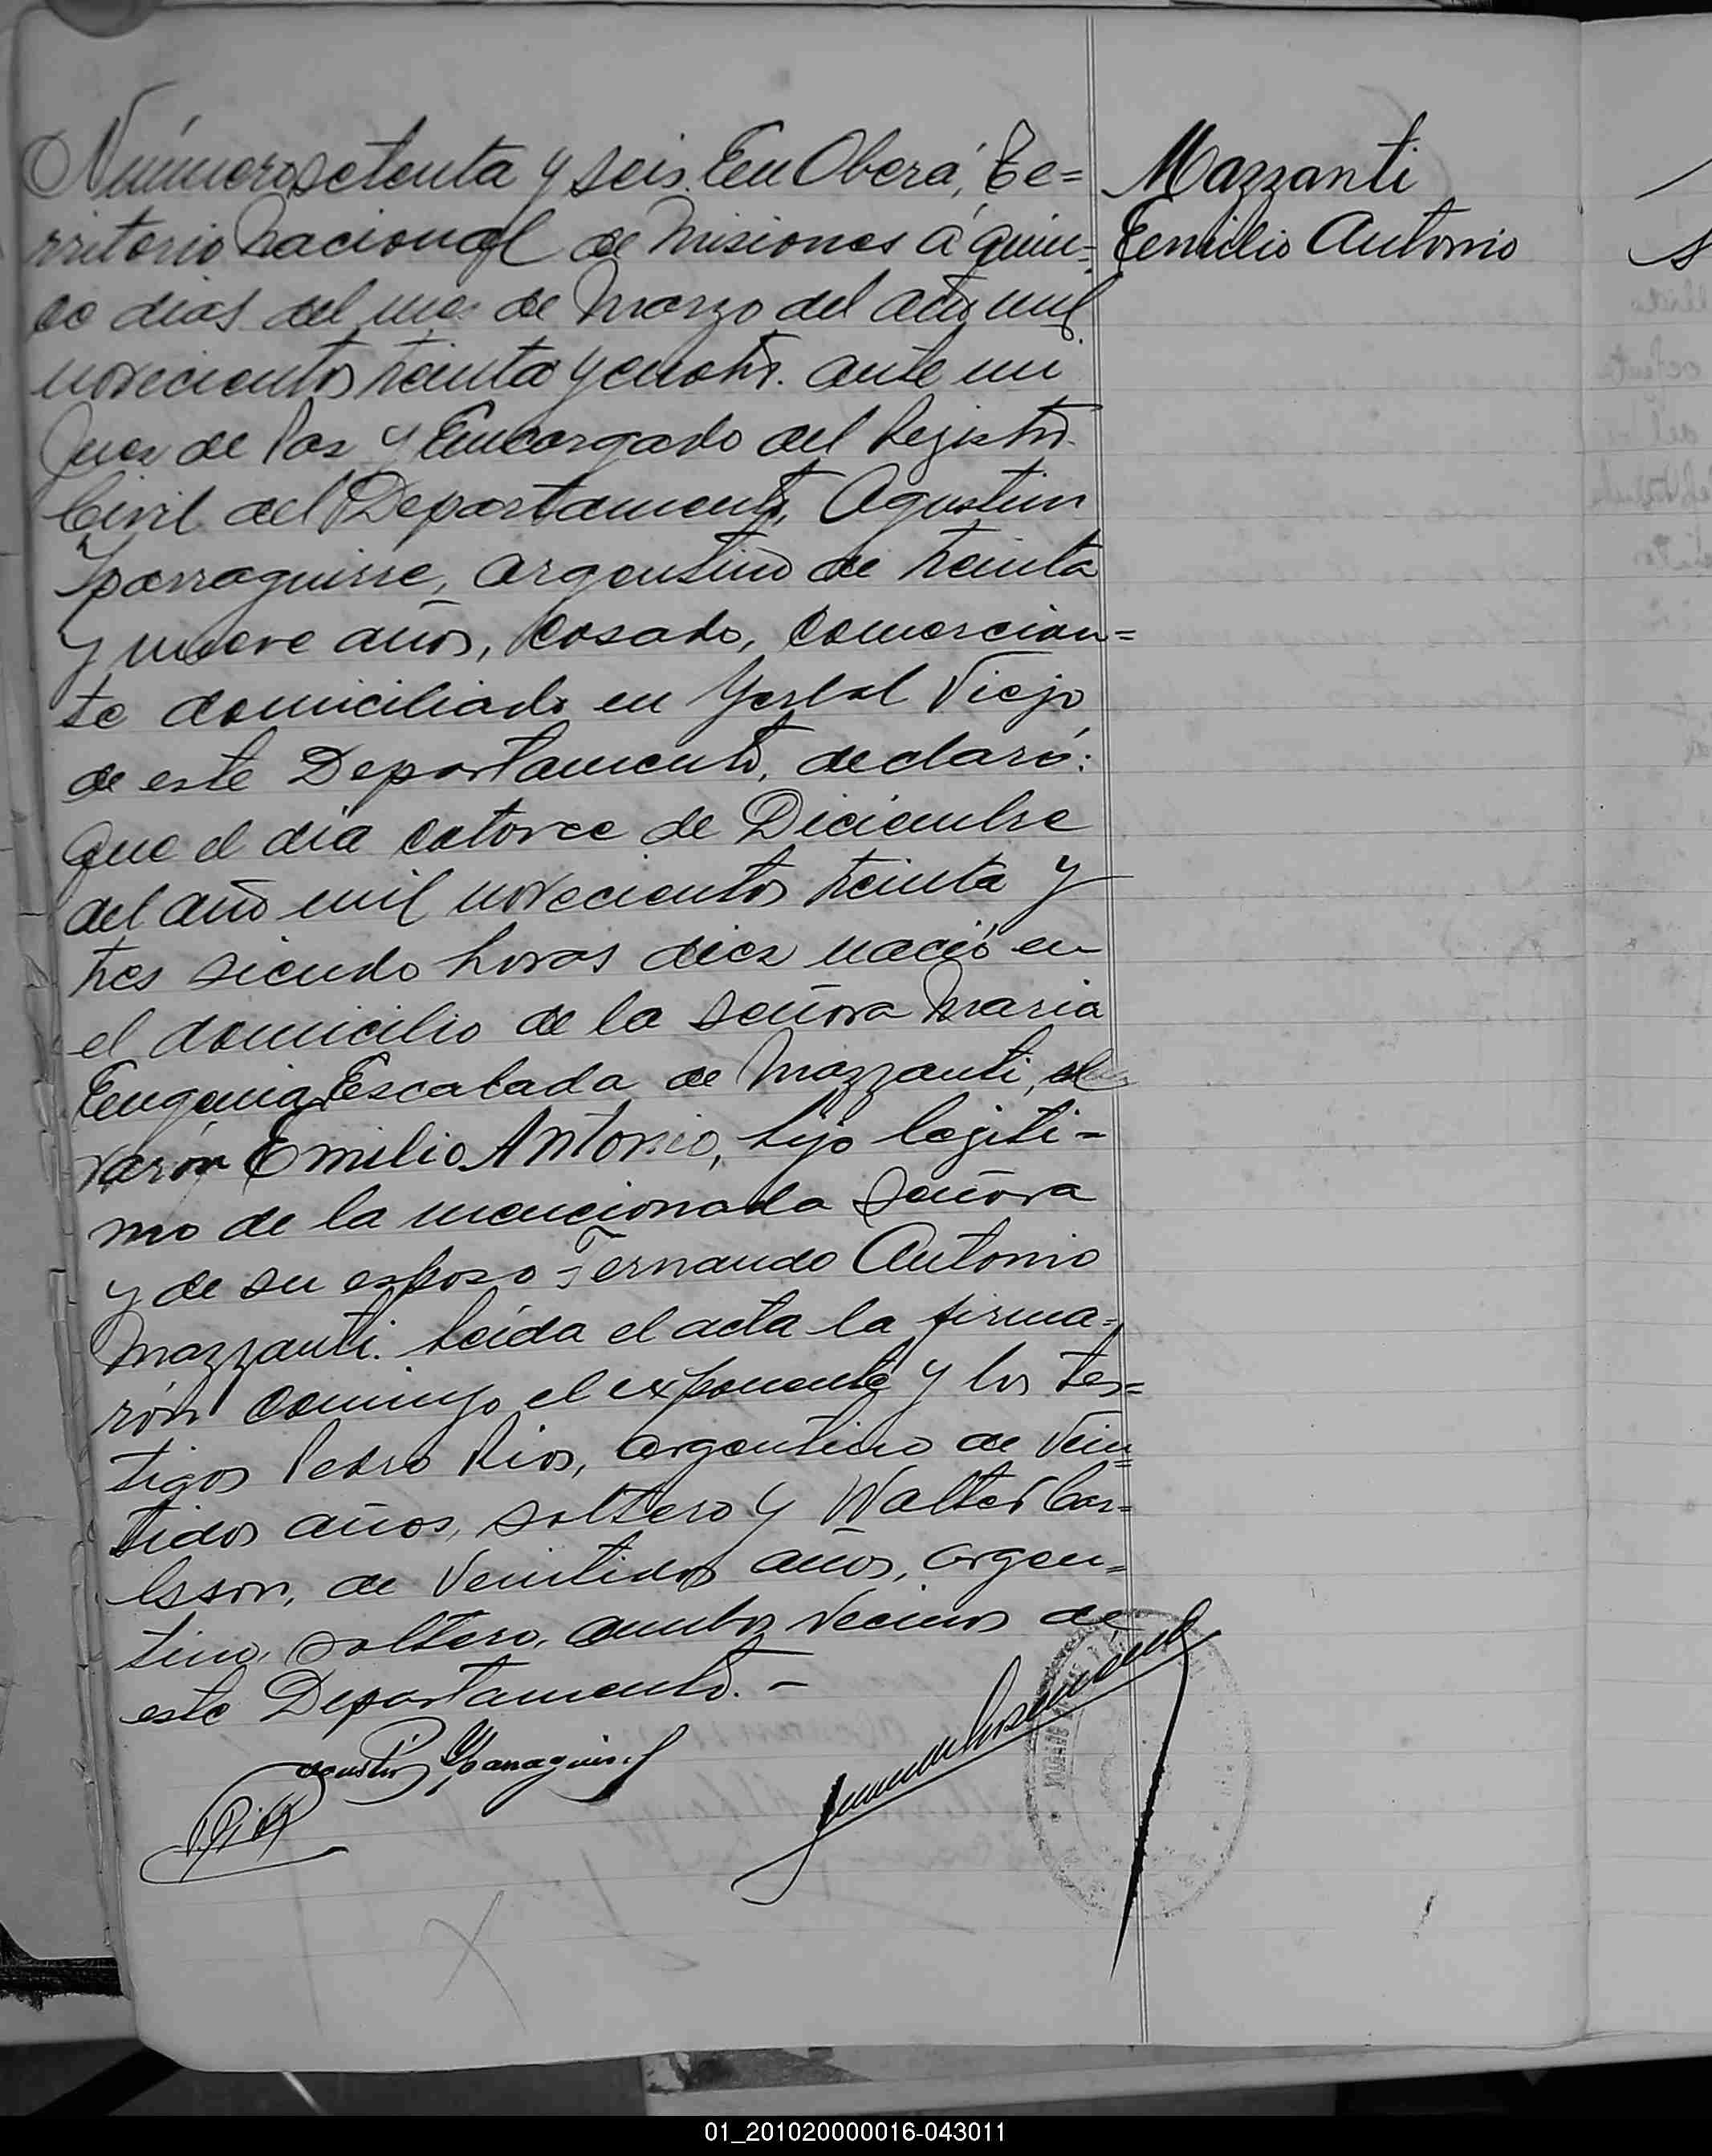 Número setenta y seis. En Oberá, Te=
rritorio Nacional de Misiones á quin=
ce dias del mes de Marzo del año mil
novecientos treinta y cuatro. ante mi
Juez de Paz y Encargado del Registro
Civil del Departamento, Agustin
Yparraguirre, argentino de treinta
y nueve años, casado, comercian=
te domiciliado en Yerbal Viejo
de este Departamento, declaró:
Que el dia catorce de Diciembre
del año mil novecientos treinta y
tres siendo horas diez nació en
el domicilio de la señora Maria
Eugenia Escalada de Mazzanti, el
varón Emilio Antonio, hijo legiti=
mo de la mencionada señora
y de su esposo Fernando Antonio
Mazzanti. Leida el acta la firma=
rón conmigo el exponente y los tes=
tigos Pedro Rios, argentino de Vein=
tidos años, soltero y Walter Car=
lsson, de Veintidos años, argen=
tino, soltero, ambos vecinos de
este Departamento. -
Agustin Yparraguirre
P. Rios
Mazzanti
Emilio Antonio
JUZGADO DE PAZ
01_201020000016-043011